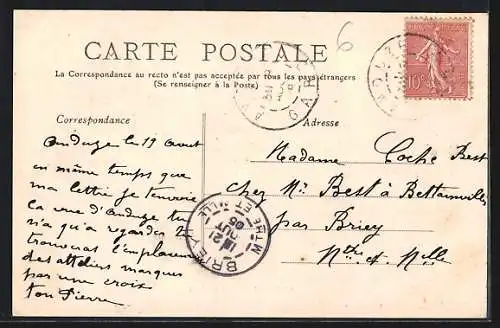 CARTE POSTALE
La Correspondance au recto n'est pas acceptée par tous les pays étrangers
(Se renseigner à la Poste)
Correspondance
Adresse
6
10c
Anduze le 19 Aout
en même temps que
ma lettre je t'envoie
la vue d'Anduze tu
n'a qu'a regarder tu
trouveras l'emplacement
des atteliers marqués
par une croix
ton Pierre
Madame Coche Best
chez Mr Best à Bettainvillers
par Briey
Mthe et Mlle
BRIEY
21
AOUT
05
MTHE ET MLLE
GARD